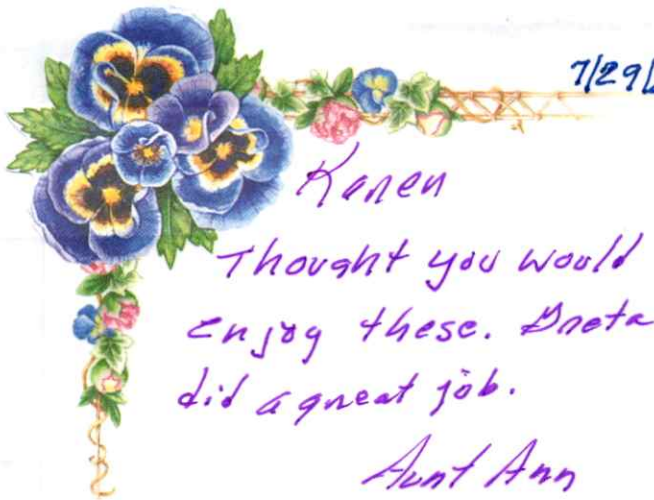 7/29/
Karen
Thought you would
enjoy these. Greta
did a great job.
Aunt Ann